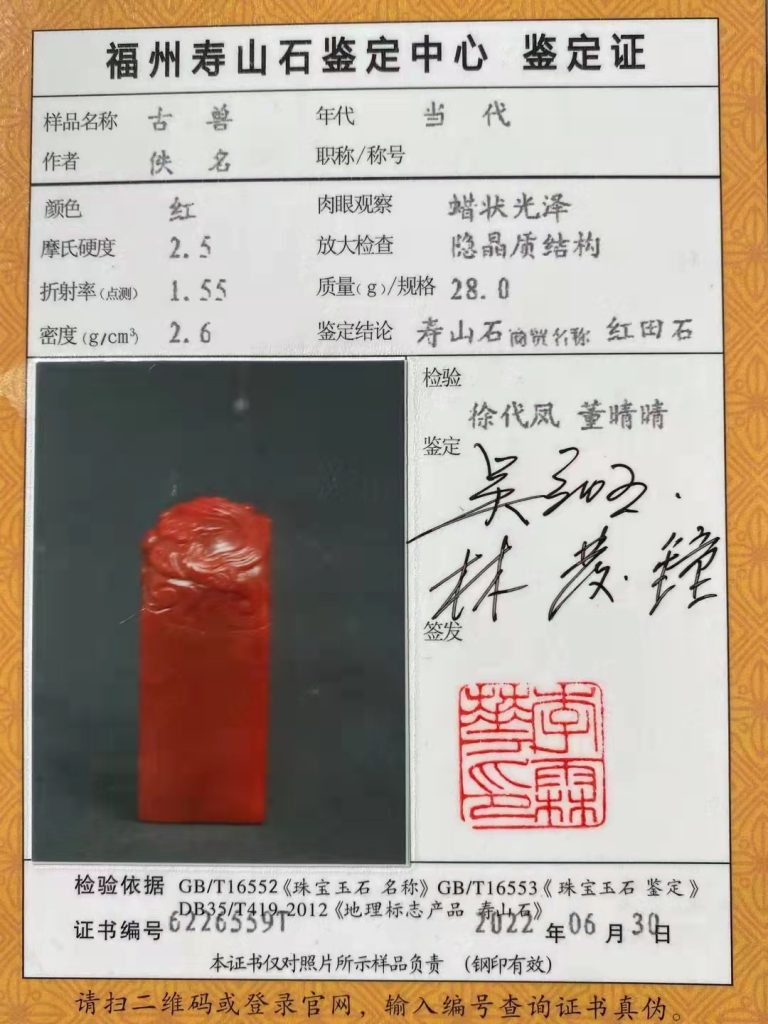 福州寿山石鉴定中心 鉴定证
样品名称 古兽 年代 当代
作者 佚名 职称/称号
颜色 红 肉眼观察 蜡状光泽
摩氏硬度 2.5 放大检查 隐晶质结构
折射率(点测) 1.55 质量(g)/规格 28.0
密度(g/cm³) 2.6 鉴定结论 寿山石 商贸名称 红田石
检验
徐代凤 董晴晴
鉴定
林
签发
李霖
华印
检验依据 GB/T16552《珠宝玉石 名称》GB/T16553《珠宝玉石 鉴定》
DB35/T419-2012《地理标志产品 寿山石》
证书编号 6226559T 2022 年 06 月 30 日
本证书仅对照片所示样品负责 (钢印有效)
请扫二维码或登录官网，输入编号查询证书真伪。